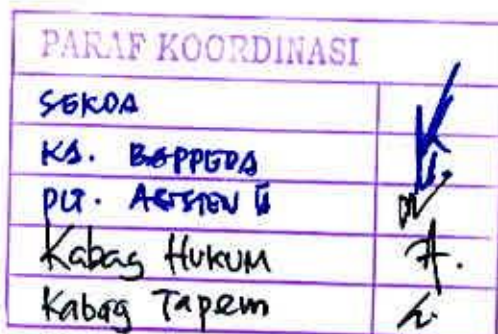 PARAF KOORDINASI
SEKDA
KA. BAPPEDA
PLT. ASISTEN II
Kabag HUKUM
Kabag Tapem